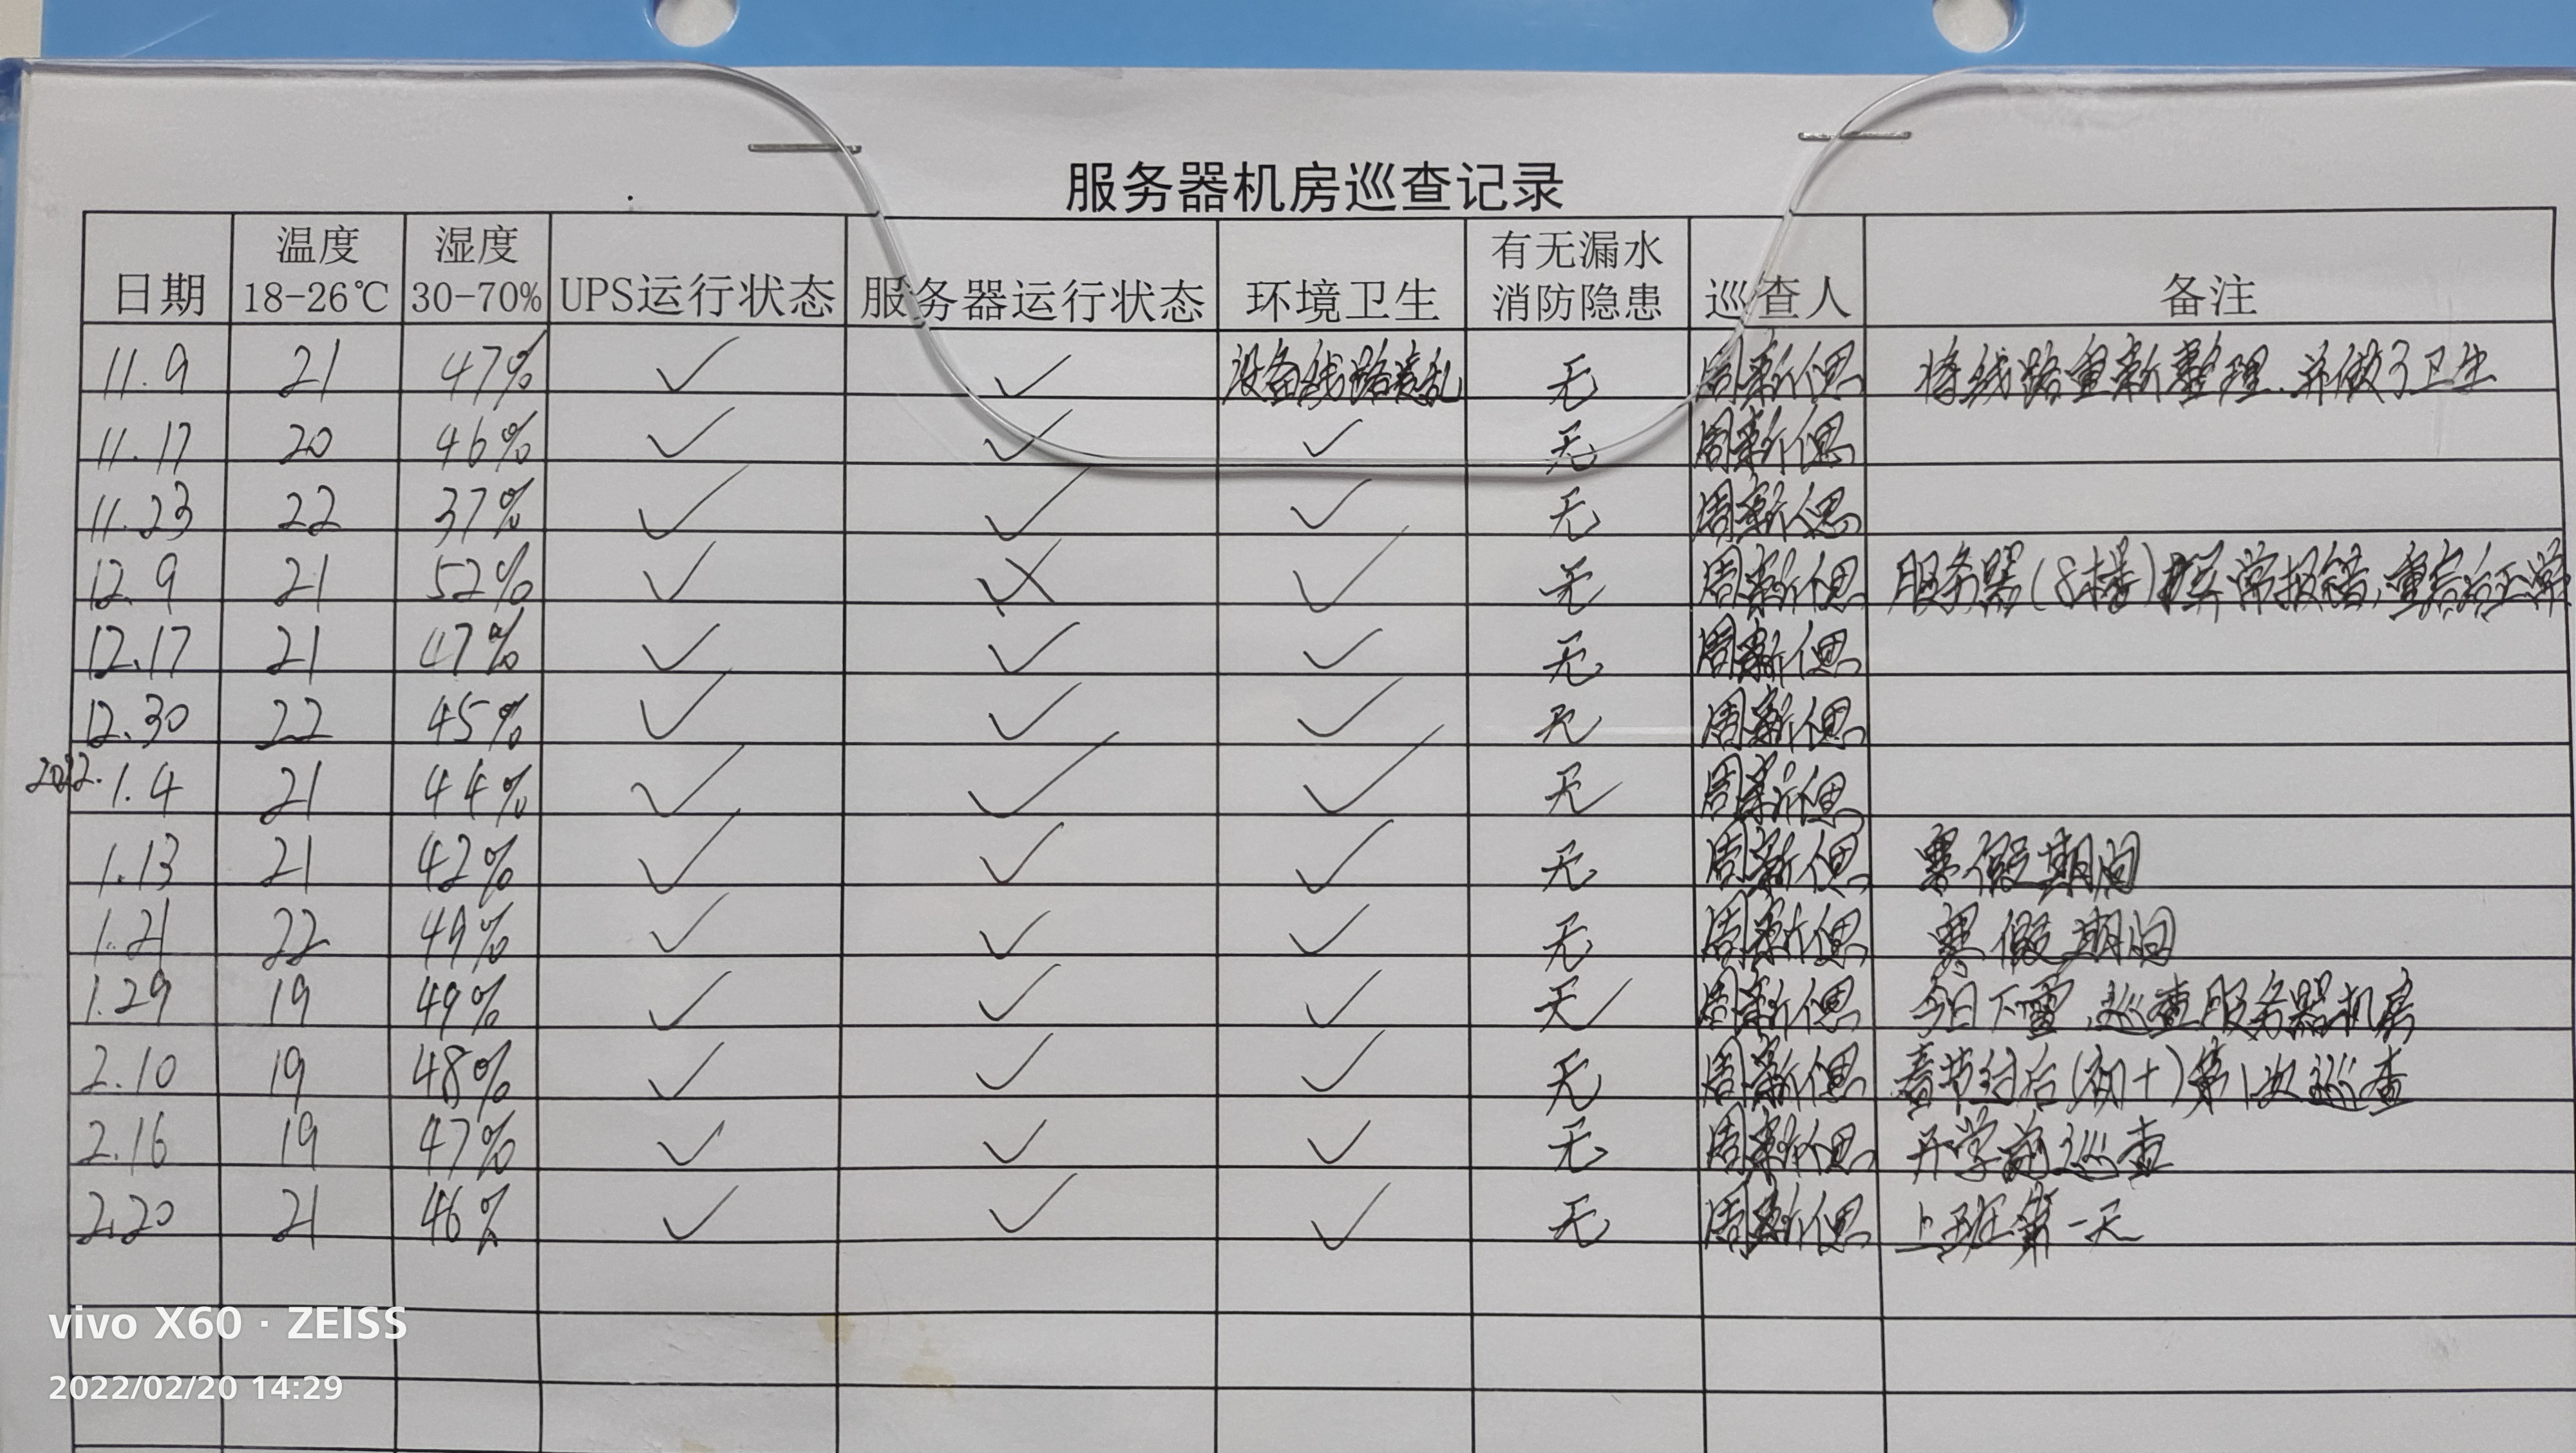 服务器机房巡查记录
日期 温度 18-26℃ 湿度 30-70% UPS运行状态 服务器运行状态 环境卫生 有无漏水 消防隐患 巡查人 备注
11.9 21 47% ✓ ✓ 设备线路凌乱 无 周新偲 将线路重新整理.并做了卫生
11.17 20 46% ✓ ✓ ✓ 无 周新偲
11.23 22 37% ✓ ✓ ✓ 无 周新偲
12.9 21 52% ✓ ✓ 无 周新偲 服务器(8楼)异常报错,重启后正常
12.17 21 47% ✓ ✓ ✓ 无 周新偲
12.30 22 45% ✓ ✓ ✓ 无 周新偲
2022. 1.4 21 44% ✓ ✓ ✓ 无 周新偲
1.13 21 42% ✓ ✓ ✓ 无 周新偲 寒假期间
1.21 22 49% ✓ ✓ ✓ 无 周新偲 寒假期间
1.29 19 49% ✓ ✓ ✓ 无 周新偲 今日下雪,巡查服务器机房
2.10 19 48% ✓ ✓ ✓ 无 周新偲 春节过后(初十)第1次巡查
2.16 19 47% ✓ ✓ ✓ 无 周新偲 开学前巡查
2.20 21 46% ✓ ✓ ✓ 无 周新偲 上班第一天
vivo X60 · ZEISS
2022/02/20 14:29